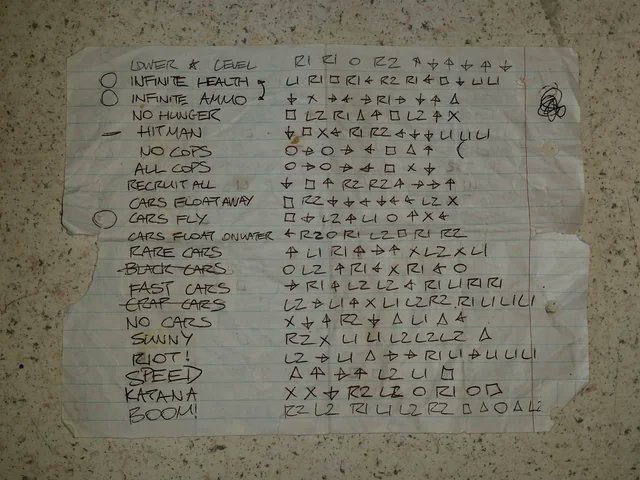 LOWER ☆ LEVEL R1 R1 O R2 ↑ ↓ ↑ ↓ ↑ ↓
INFINITE HEALTH L1 R1 □ R1 ← R2 R1 ← □ ↓ L1 L1
INFINITE AMMO ↓ X → ← → R1 → ↓ ↑ △
NO HUNGER □ L2 R1 △ ↑ □ L2 ↑ X
HITMAN ↓ □ X ← R1 R2 ← ↓ ↓ L1 L1 L1
NO COPS O → O → ← □ △ ↑
ALL COPS O → O → ← □ X ↓
RECRUIT ALL ↓ □ ↑ R2 R2 ↑ → → ↑
CARS FLOAT AWAY □ R2 ↓ ↓ ← ↓ ← ← L2 X
CARS FLY □ ↓ L2 ↑ L1 O ↑ X ←
CARS FLOAT ON WATER ← R2 O R1 L2 □ R1 R2
RARE CARS ↑ L1 R1 ↑ → ↑ X L2 X L1
BLACK CARS O L2 ↑ R1 ← X R1 ← O
FAST CARS → R1 ↑ L2 L2 ← R1 L1 R1 R1
CRAP CARS L2 → L1 ↑ X L1 L2 R2 R1 L1 L1 L1
NO CARS X ↓ ↑ R2 ↓ △ L1 △ ←
SUNNY R2 X L1 L1 L2 L2 L2 △
RIOT! L2 → L1 △ → → R1 L1 → L1 L1 L1
SPEED △ ↑ → ↑ L2 L1 □
KATANA X X ↓ R2 L2 O R1 O □
BOOM! R2 L2 R1 L1 L2 R2 □ △ O △ L2